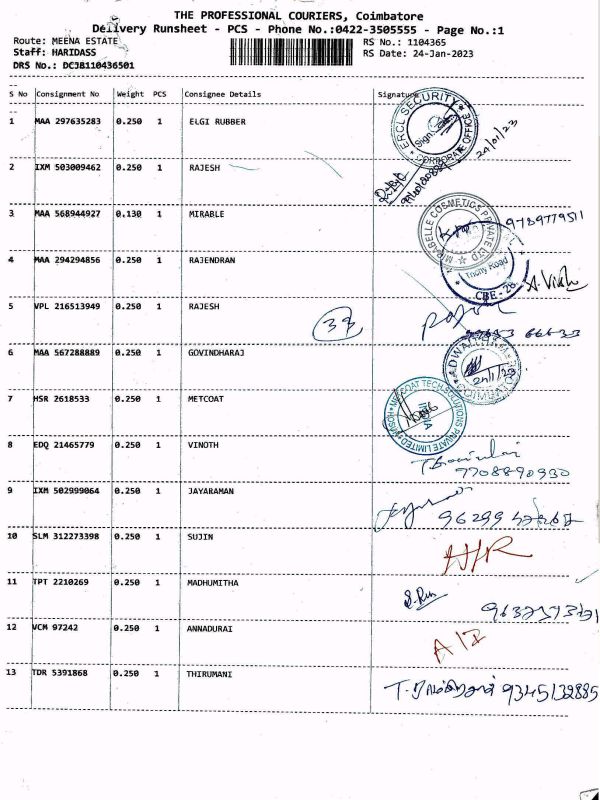 THE PROFESSIONAL COURIERS, Coimbatore
Delivery Runsheet - PCS - Phone No.:0422-3505555 - Page No.:1
Route: MEENA ESTATE RS No.: 1104365
Staff: HARIDASS RS Date: 24-Jan-2023
DRS No.: DCJB110436501
S No Consignment No Weight PCS Consignee Details Signature
1 MAA 297635283 0.250 1 ELGI RUBBER
ERCL SECURITY
Sign.
CORPORATE OFFICE
24/01/23
2 IXM 503009462 0.250 1 RAJESH
3 MAA 568944927 0.130 1 MIRABLE
MIRABELLE COSMETICS PRIVATE LTD
9789779511
4 MAA 294294856 0.250 1 RAJENDRAN
Trichy Road
CBE - 28
5 VPL 216513949 0.250 1 RAJESH
33
6 MAA 567288889 0.250 1 GOVINDHARAJ
24/1/23
7 HSR 2618533 0.250 1 METCOAT
METCOAT TECH SOLUTIONS PRIVATE LIMITED
8 EDQ 21465779 0.250 1 VINOTH
7708890930
9 IXM 502999064 0.250 1 JAYARAMAN
10 SLM 312273398 0.250 1 SUJIN
N/R
11 TPT 2210269 0.250 1 MADHUMITHA
12 VCM 97242 0.250 1 ANNADURAI
A/I
13 TDR 5391868 0.250 1 THIRUMANI
9345132885